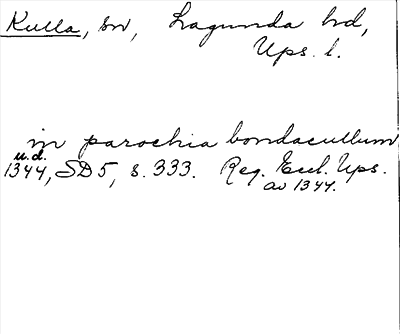 Kulla, sn, Lagunda hd,
Ups. l.
in parochia bondacullum
u.d.
1344, SD5, s. 333. Reg. Eccl. Ups.
av 1344.